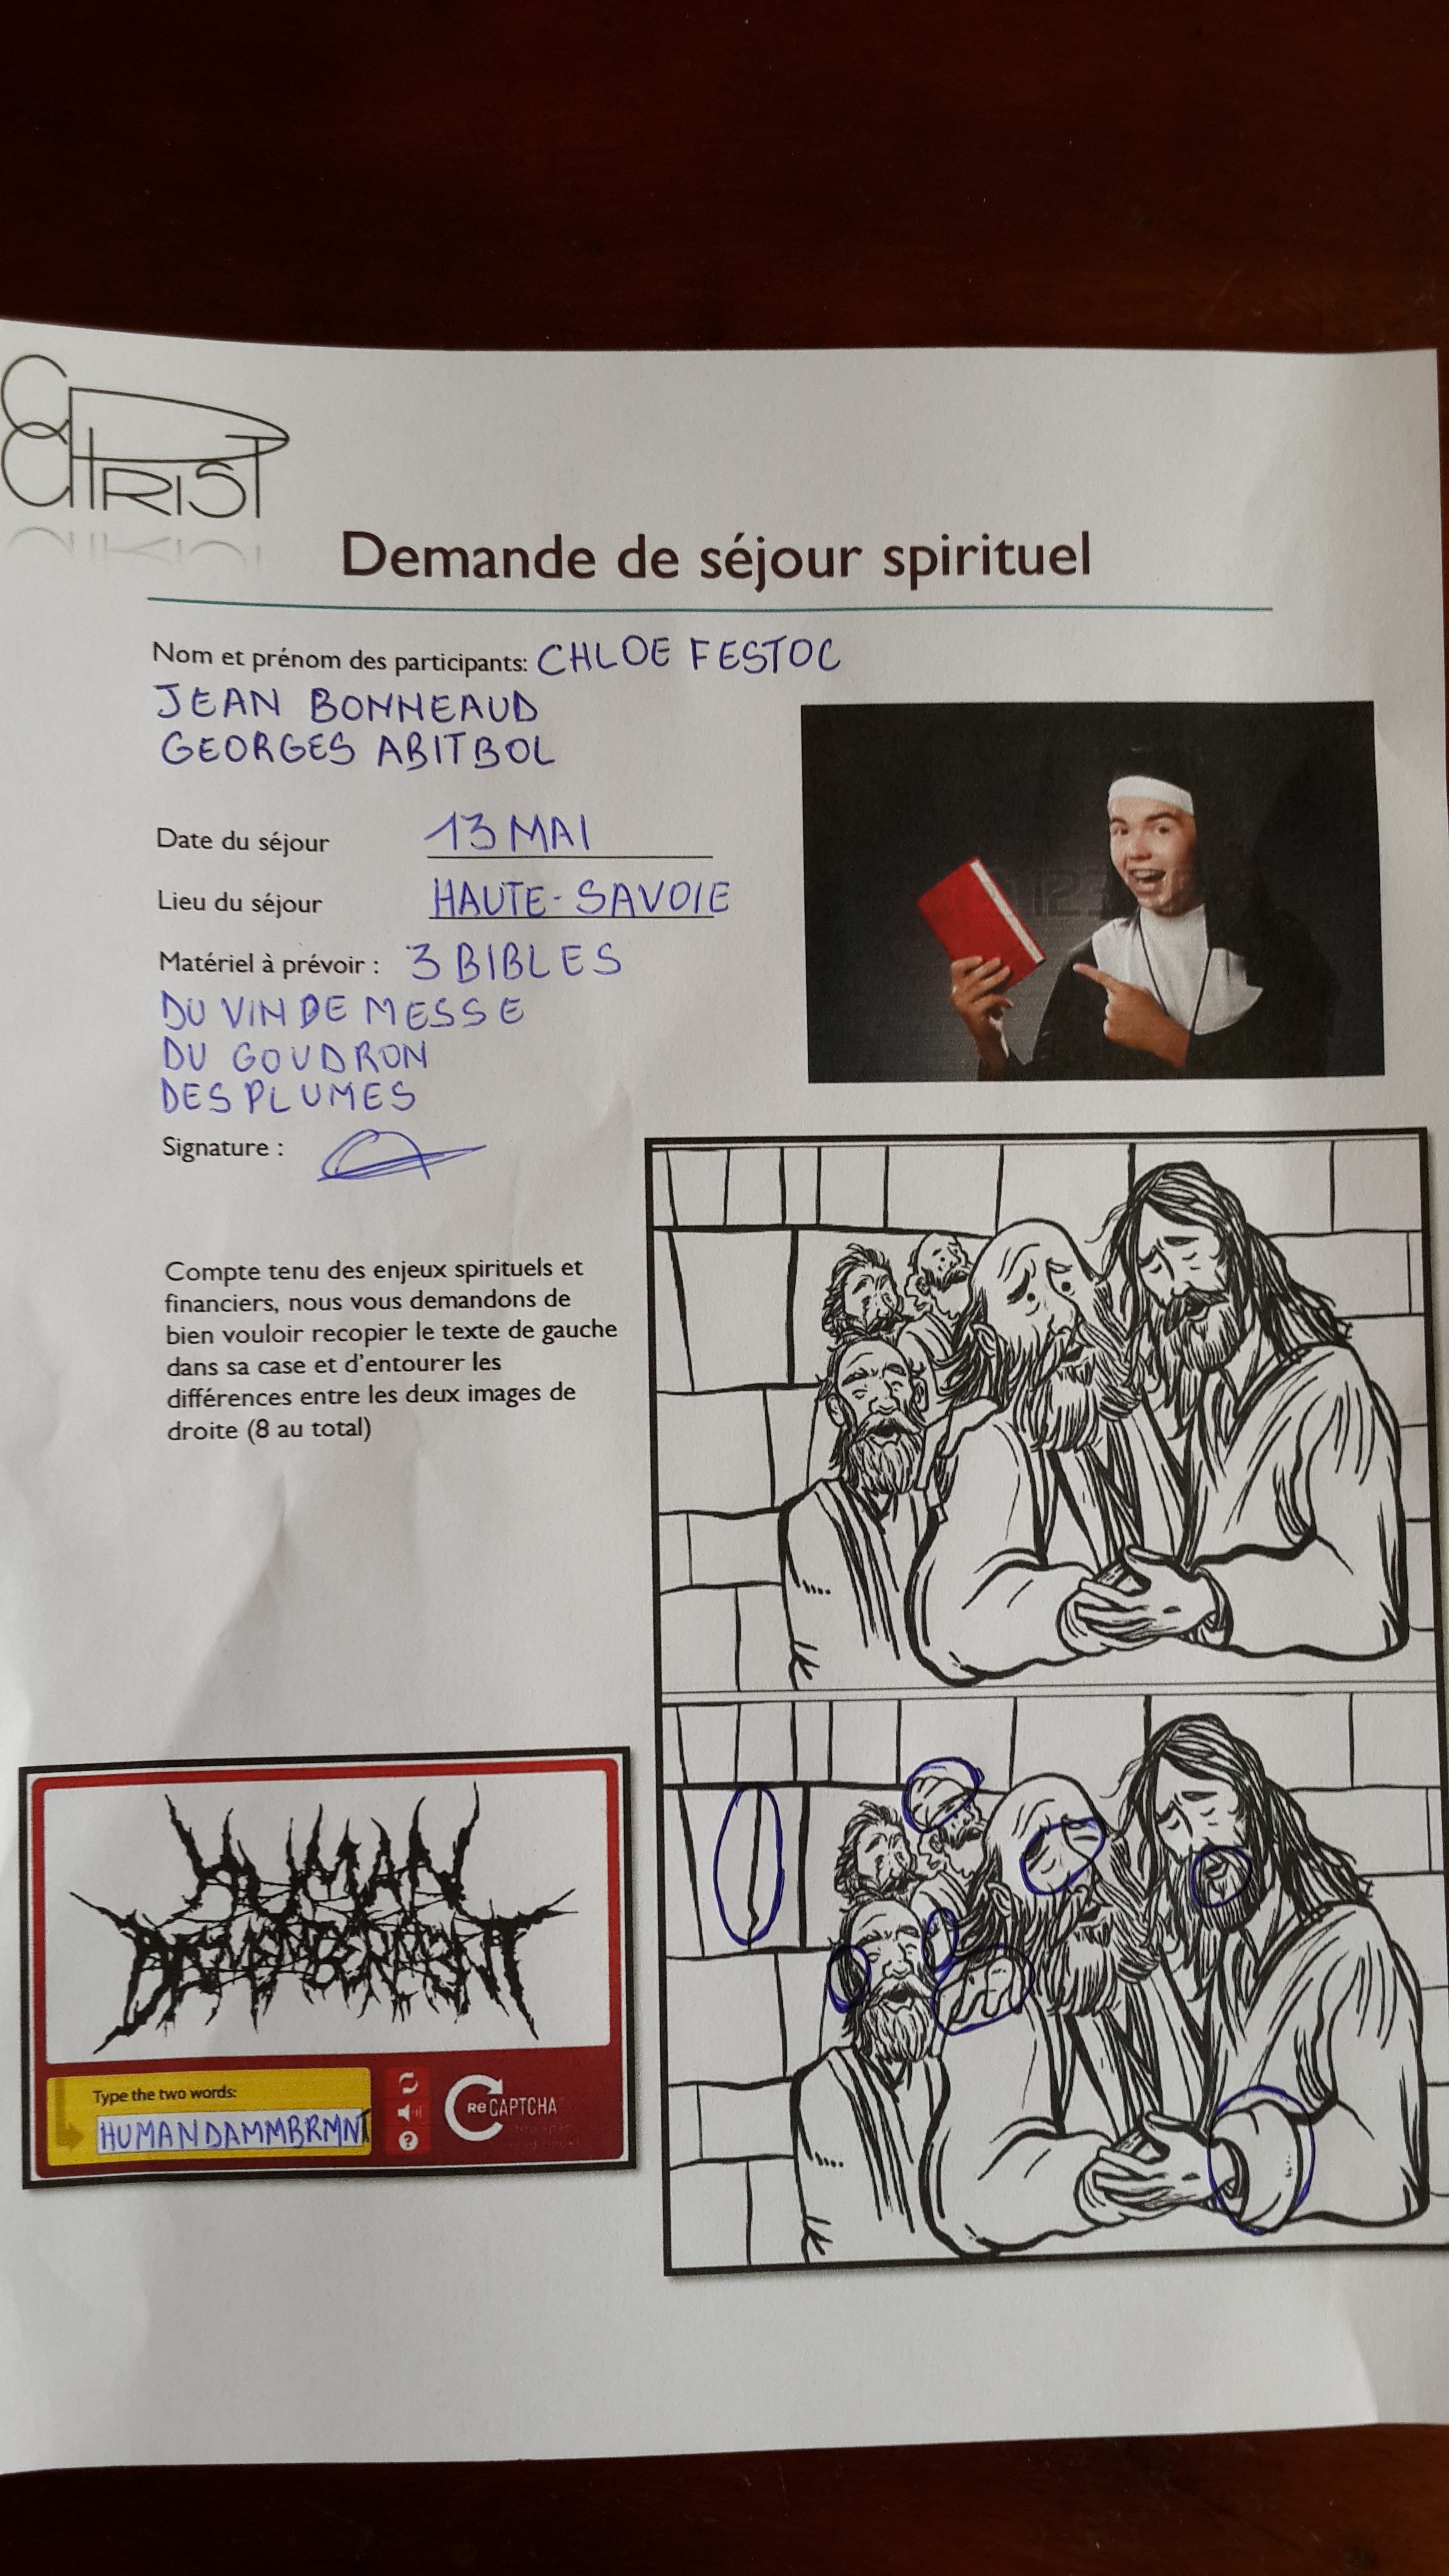 CHRIST
Demande de séjour spirituel
Nom et prénom des participants: CHLOE FESTOC
JEAN BONNEAUD
GEORGES ABITBOL
Date du séjour 13 MAI
Lieu du séjour HAUTE-SAVOIE
Matériel à prévoir : 3 BIBLES
DU VIN DE MESSE
DU GOUDRON
DES PLUMES
Signature :
Compte tenu des enjeux spirituels et
financiers, nous vous demandons de
bien vouloir recopier le texte de gauche
dans sa case et d'entourer les
différences entre les deux images de
droite (8 au total)
HUMAN
Type the two words:
HUMANDAMMBRMNT
ReCAPTCHA
?